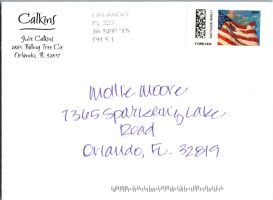 Calkins
Julie Calkins
2885 Falling Tree Cir
Orlando, FL 32837
ORLANDO
FL 327
16 SEP '15
PM 5 1
FOREVER
Mollie Moore
7365 Sparkling Lake
Road
Orlando, FL 32819